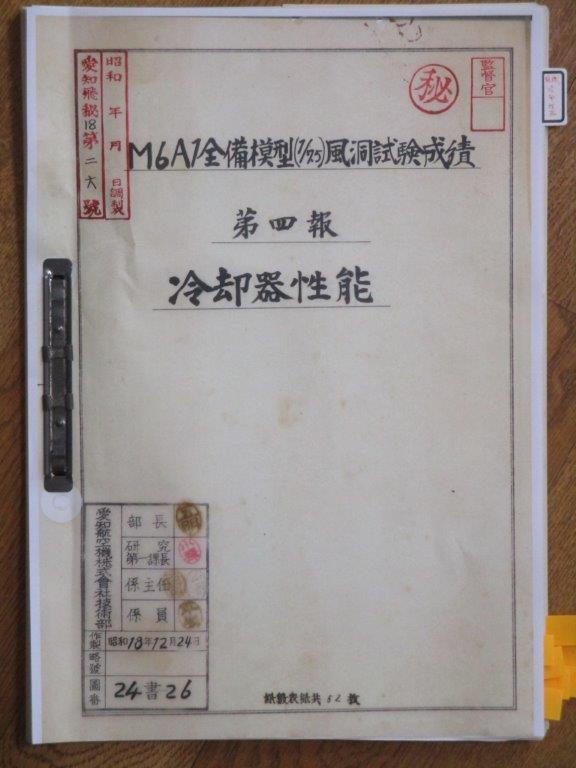 愛知飛秘18第二六號
昭和 年 月 日調製
㊙
監督官
M6A1全備模型(1/7.5)風洞試験成績
第四報
冷却器性能
愛知航空機株式會社技術部
部長
研究
第一課長
係主任
係員
作製 昭和18年12月24日
略號
圖番 24書26
紙數表紙共52枚